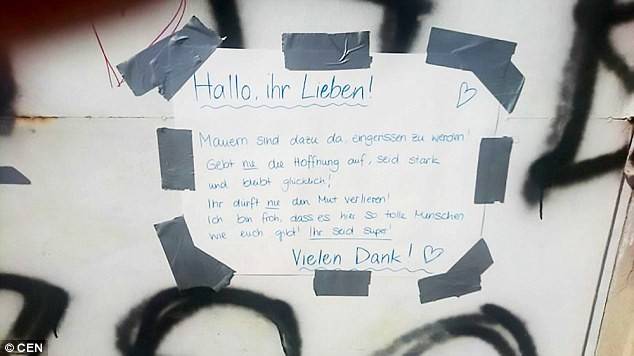 Hallo, ihr Lieben!
Mauern sind dazu da, eingerissen zu werden!
Gebt nie die Hoffnung auf, seid stark
und bleibt glücklich!
Ihr dürft nie den Mut verlieren!
Ich bin froh, dass es hier so tolle Menschen
wie euch gibt! Ihr seid super!
Vielen Dank!
© CEN